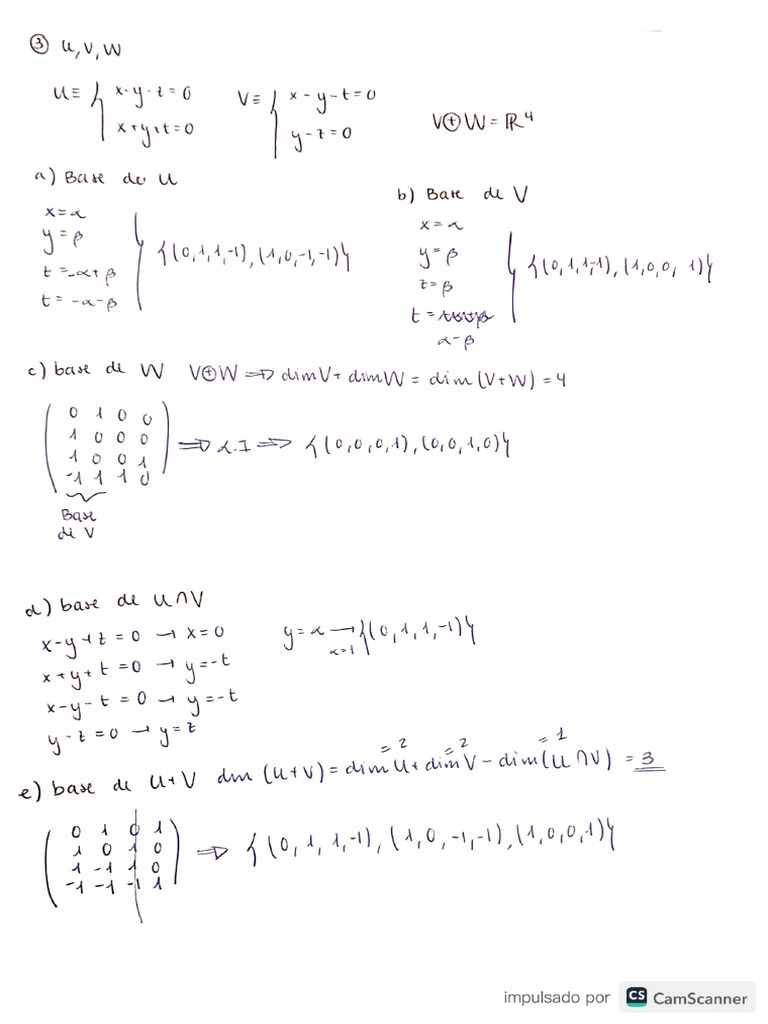 ③ U, V, W
U ≡ { x - y - z = 0
x + y + t = 0
V ≡ { x - y - t = 0
y - z = 0
V ⊕ W = ℝ⁴
a) Base de U
x = α
y = β
z = -α + β
t = -α - β
{(0,1,1,-1), (1,0,-1,-1)}
b) Base de V
x = α
y = β
z = β
t =
α - β
{(0,1,1,-1), (1,0,0,1)}
c) base de W V⊕W ⟹ dim V + dim W = dim (V+W) = 4
0 1 0 0
1 0 0 0
1 0 0 1
-1 1 1 0
⟹ L.I ⟹ {(0,0,0,1), (0,0,1,0)}
Base
de V
d) base de U∩V
x - y + z = 0 → x = 0
x + y + t = 0 → y = -t
x - y - t = 0 → y = -t
y - z = 0 → y = z
y = α → {(0,1,1,-1)}
α=1
e) base de U+V dim (U+V) = dim U + dim V - dim (U∩V) = 3
=2 =2 =1
0 1 0 1
1 0 1 0
1 -1 1 0
-1 -1 -1 1
⟹ {(0,1,1,-1), (1,0,-1,-1), (1,0,0,1)}
impulsado por CS CamScanner